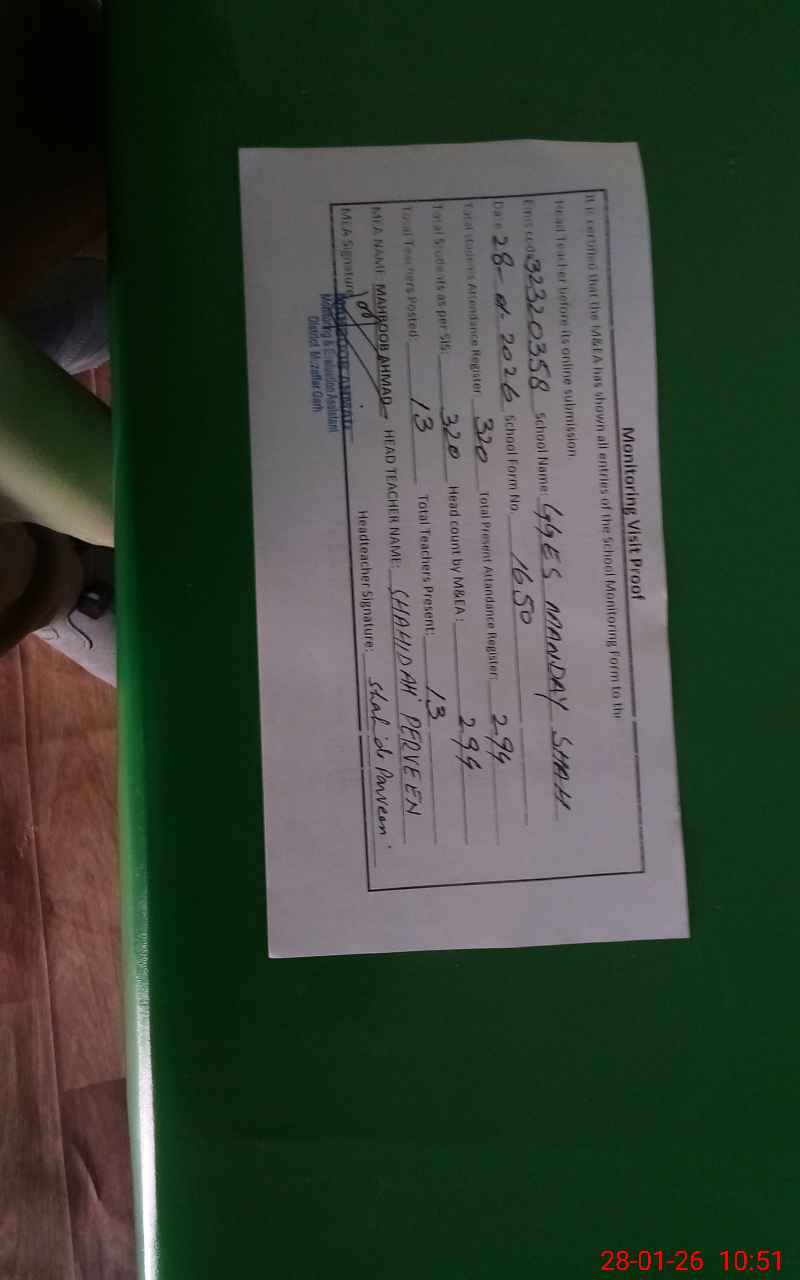 Monitoring Visit Proof
It is certified that the M&EA has shown all entries of the School Monitoring Form to the
Head Teacher before its online submission
Emis code 32320358 School Name: GGES MANDAY SHAH
Date 28-01-2026 School Form No. 1650
Total students Attendance Register: 320 Total Present Attandance Register: 294
Total Students as per SIS: 320 Head count by M&EA: 294
Total Teachers Posted: 13 Total Teachers Present: 13
MEA NAME: MAHBOOB AHMAD HEAD TEACHER NAME: SHAHIDAH PERVEEN
MEA Signature Headteacher Signature: Shahida Parveen
MAHBOOB AHMAD
Monitoring & Evaluation Assistant
District Muzaffar Garh
28-01-26 10:51